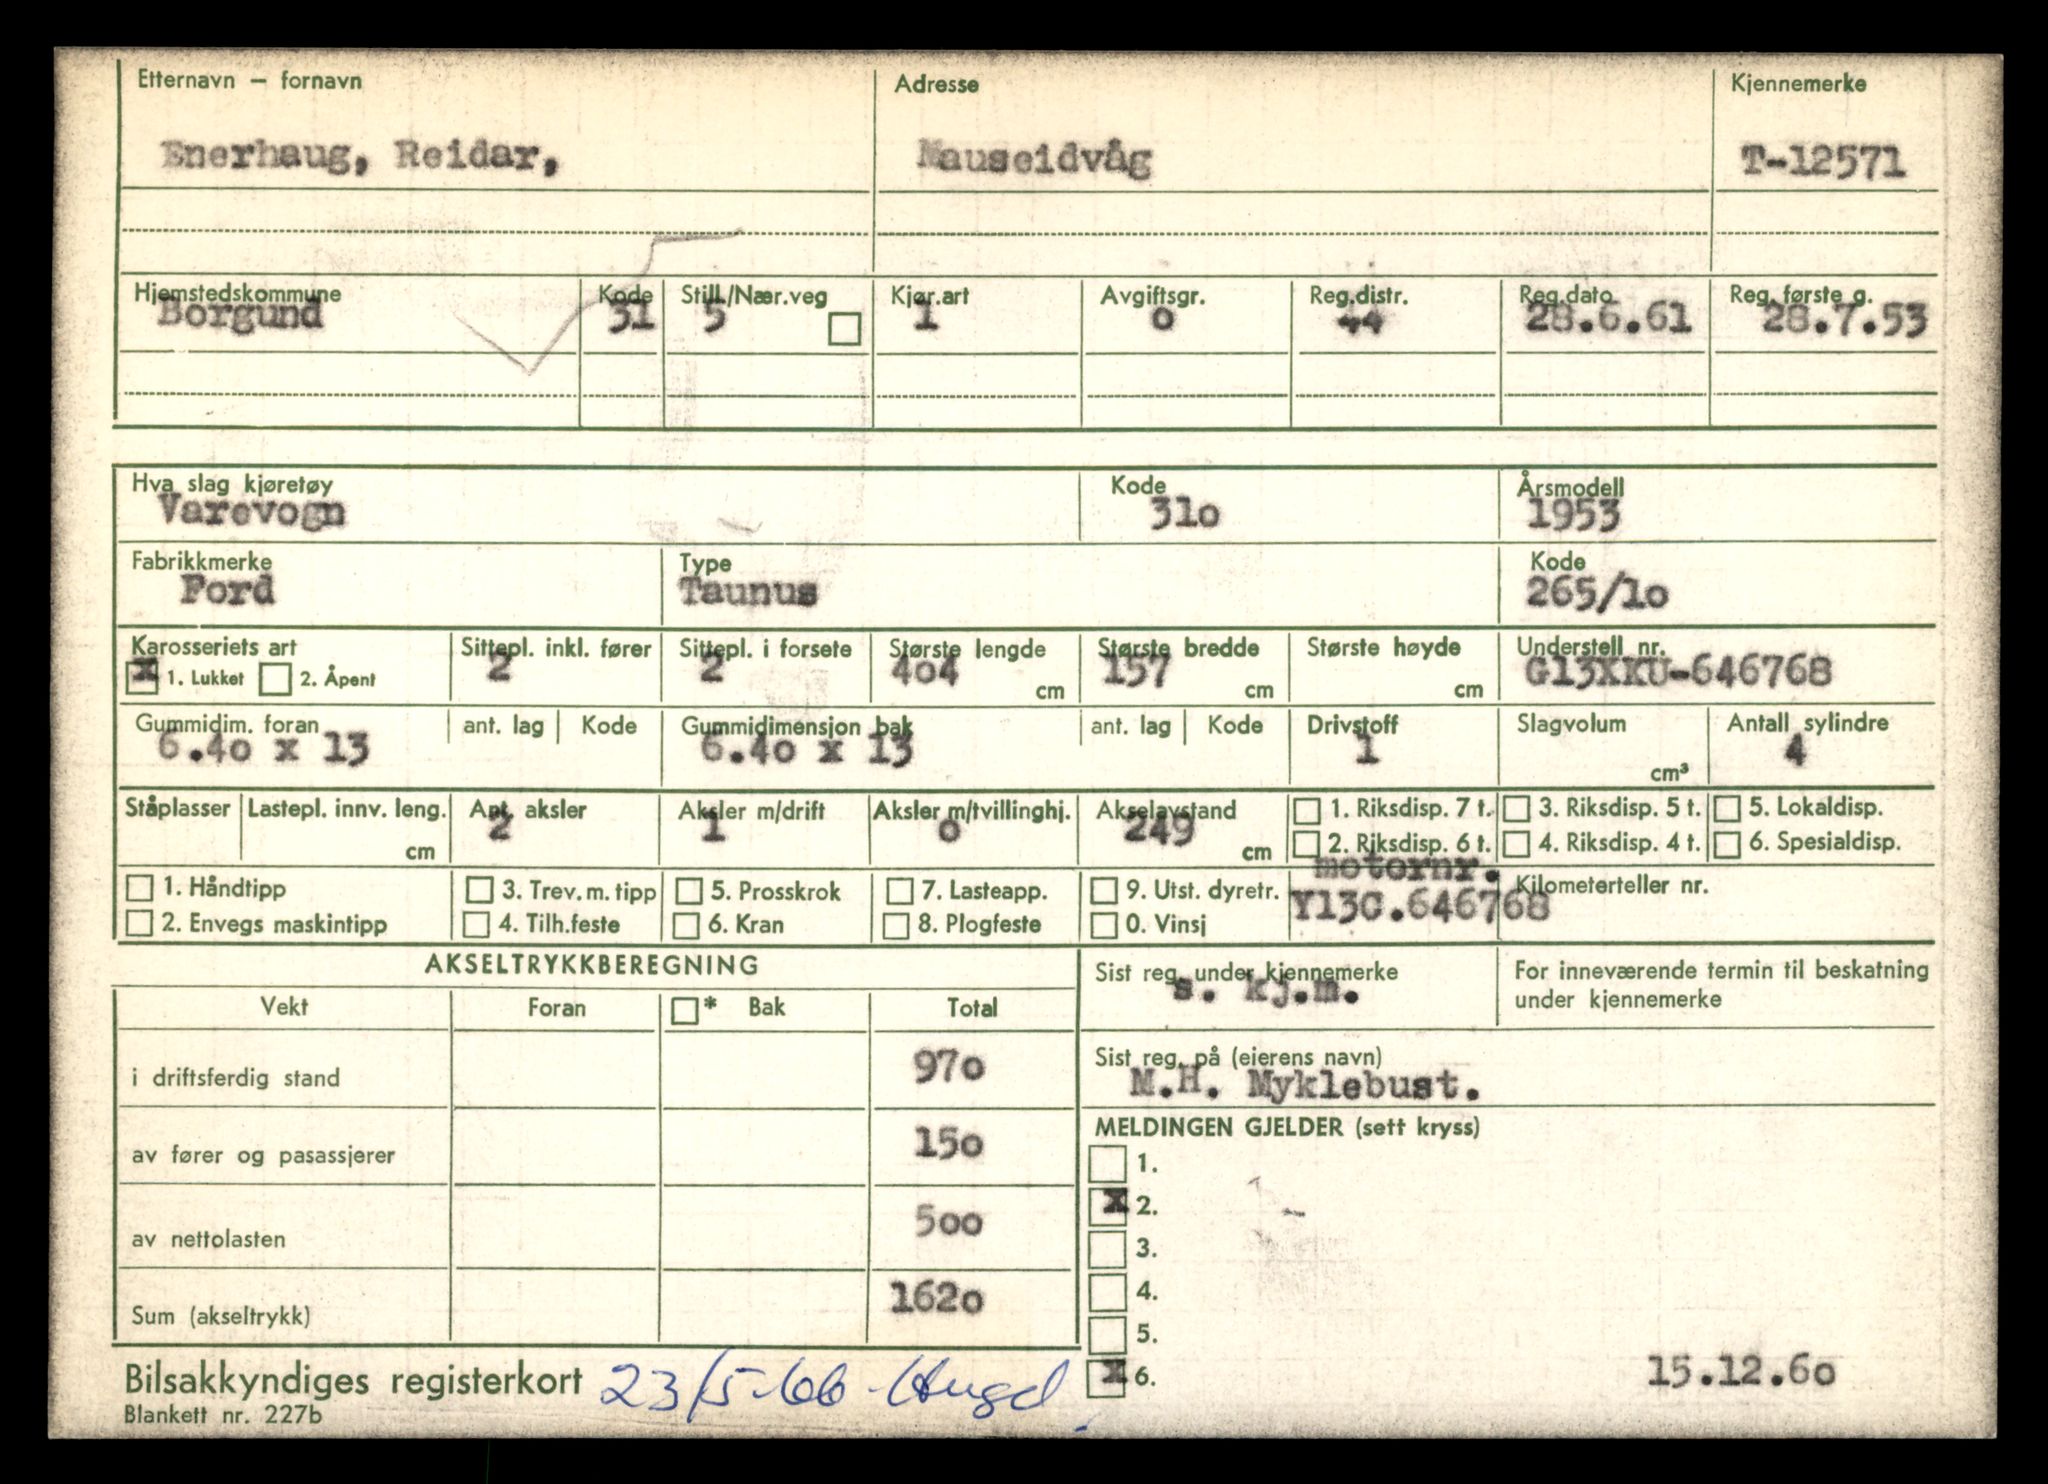 Etternavn – fornavn Adresse Kjennemerke
Enerhaug, Reidar, Mauseidvåg T-12571
Hjemstedskommune Kode Still./Nær.veg Kjør.art Avgiftsgr. Reg.distr. Reg.dato Reg. første g.
Borgund 31 5 1 o 44 28.6.61 28.7.53
Hva slag kjøretøy Kode Årsmodell
Varevogn 31o 1953
Fabrikkmerke Type Kode
Ford Taunus 265/1o
Karosseriets art Sittepl. inkl. fører Sittepl. i forsete Største lengde Største bredde Største høyde Understell nr.
x 1. Lukket 2. Åpent 2 2 4o4 cm 157 cm cm G13XKU-646768
Gummidim. foran ant. lag Kode Gummidimensjon bak ant. lag Kode Drivstoff Slagvolum Antall sylindre
6.4o x 13 6.4o x 13 1 cm³ 4
Ståplasser Lastepl. innv. leng. Ant. aksler Aksler m/drift Aksler m/tvillinghj. Akselavstand 1. Riksdisp. 7 t. 3. Riksdisp. 5 t. 5. Lokaldisp.
cm 2 1 o 249 cm 2. Riksdisp. 6 t. 4. Riksdisp. 4 t. 6. Spesialdisp.
1. Håndtipp 3. Trev. m. tipp 5. Prosskrok 7. Lasteapp. 9. Utst. dyretr. motornr. Kilometerteller nr.
2. Envegs maskintipp 4. Tilh.feste 6. Kran 8. Plogfeste 0. Vinsj Y13C.646768
AKSELTRYKKBEREGNING
Vekt Foran * Bak Total
i driftsferdig stand 97o
av fører og pasassjerer 15o
av nettolasten 5oo
Sum (akseltrykk) 162o
Sist reg. under kjennemerke For inneværende termin til beskatning
s. kj.m. under kjennemerke
Sist reg. på (eierens navn)
M.H. Myklebust.
MELDINGEN GJELDER (sett kryss)
1.
x 2.
3.
4.
5.
x 6. 15.12.6o
Bilsakkyndiges registerkort 23/5-66
Blankett nr. 227b